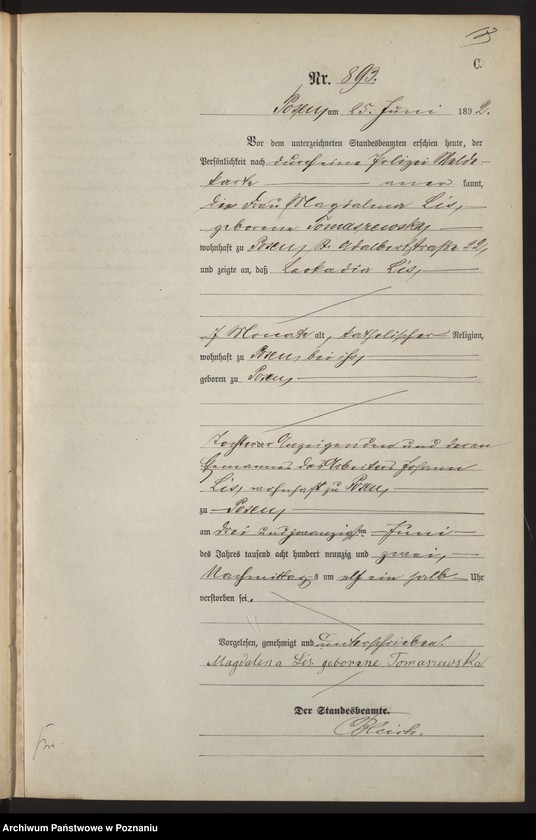 C.
Nr. 893.
Posen, am 25. Juni 1892.
Vor dem unterzeichneten Standesbeamten erschien heute, der
Persönlichkeit nach durch eine Polizei Melde-
karte anerkannt,
die Frau Magdalena Lis,
geborene Tomaszewska,
wohnhaft zu Posen, St. Adalbertstraße 22,
und zeigte an, daß Leokadia Lis,
7 Monate alt, katholischer Religion,
wohnhaft zu Posen, bei ihr,
geboren zu Posen,
Tochter der Anzeigenden und deren
Ehemannes des Arbeiters Johann
Lis, wohnhaft zu Posen,
zu Posen,
am drei und zwanzigsten Juni
des Jahres tausend acht hundert neunzig und zwei,
Nachmittags um elf ein halb Uhr
verstorben sei.
Vorgelesen, genehmigt und unterschrieben.
Magdalena Lis geborene Tomaszewska
Der Standesbeamte.
Archiwum Państwowe w Poznaniu